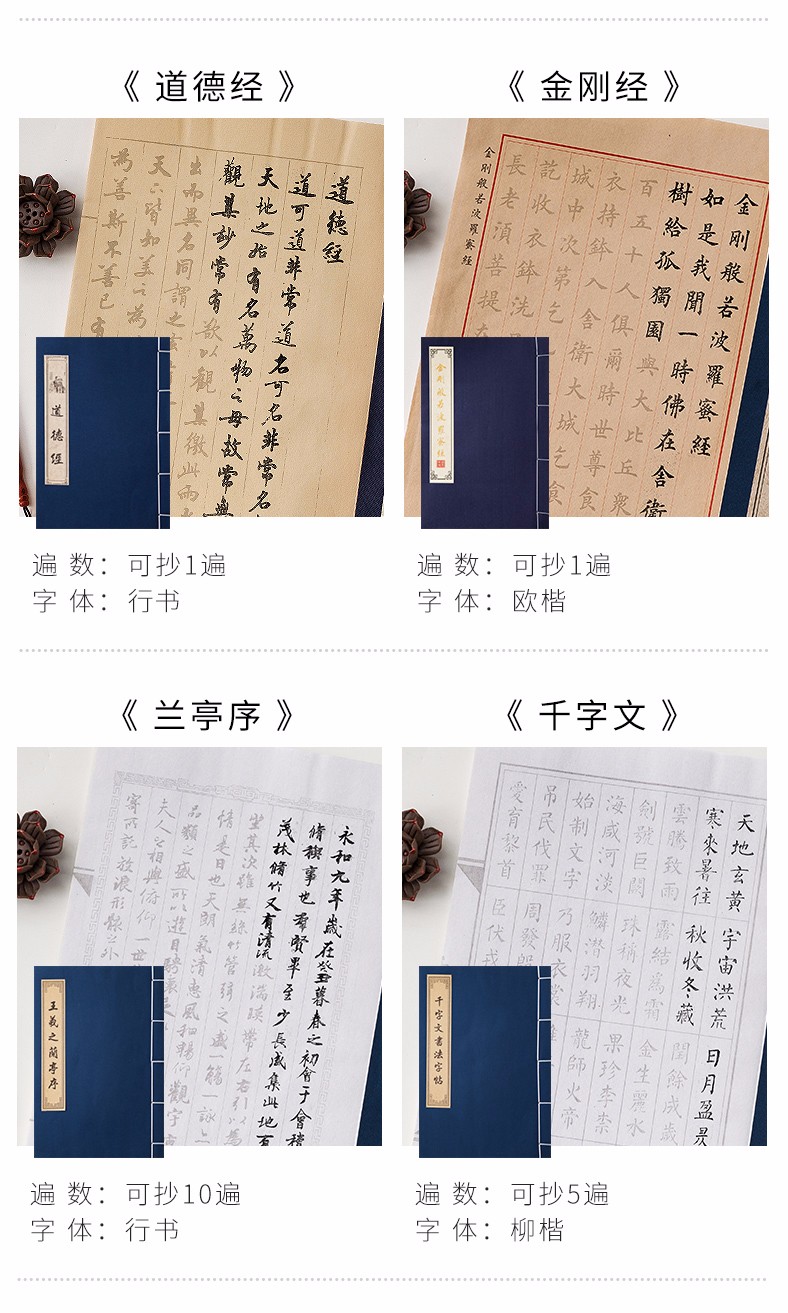 《 道德经 》
道德經
道可道非常道名可名非常名
天地之始有名萬物之母故常無
觀其妙常有欲以觀其徼此兩
出而異名同謂之玄
天下皆知美之為
為善斯不善已有
道德經
遍 数：可抄1遍
字 体：行书
《 金刚经 》
金剛般若波羅蜜經
如是我聞一時佛在舍衛
樹給孤獨園與大比丘眾
百五十人俱爾時世尊食
衣持鉢入舍衛大城乞食
城中次第乞
訖收衣鉢洗
長老須菩提
金剛般若波羅蜜經
金剛般若波羅蜜經
遍 数：可抄1遍
字 体：欧楷
《 兰亭序 》
永和九年歲在癸丑暮春之初會于會稽
脩禊事也羣賢畢至少長咸集此地有
茂林脩竹又有清流激湍暎帶左右引以為
坐其次雖無絲竹管絃之盛一觴一詠
情是日也天朗氣清惠風和暢仰觀宇宙
品類之盛所以遊目騁懷
夫人之相與俯仰一世
寄所託放浪形骸之外
王羲之蘭亭序
遍 数：可抄10遍
字 体：行书
《 千字文 》
天地玄黃 宇宙洪荒 日月盈昃
寒來暑往 秋收冬藏 閏餘成歲
雲騰致雨 露結為霜 金生麗水
劍號巨闕 珠稱夜光 果珍李柰
海咸河淡 鱗潛羽翔 龍師火帝
始制文字 乃服衣裳
吊民伐罪 周發殷
愛育黎首 臣伏戎
千字文書法字帖
遍 数：可抄5遍
字 体：柳楷